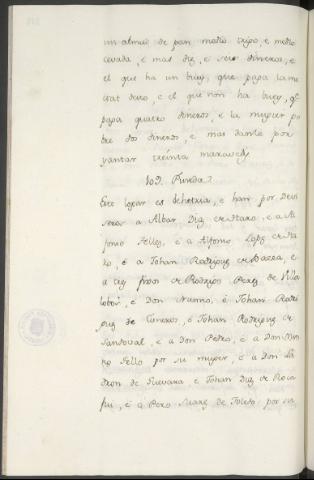 un almud de pan medio trigo, e medio
cevada, e mas diz, e seis dineros, e
el que ha un buey, que paga la me
etat desto, e el que non ha buey, q.e
paga quatro dineros, e la muger po
bre dos dineros, e mas danle por
yantar treinta maravedis
Este logar es behetria, e han por Devi
seros a Albar Diaz de Haro, e a Al
fonso Tellez, e a Alfonso Lopez de Ha
ro, e a Johan Rodriguez de Baeza, e
a tres fijos de Rodrigo Perez de Villa
lobos, e Don Nunno, e Johan Rodri
guez de Cisneros, e Johan Rodriguez de
Sandoval, e a Don Pedro, e a Don
Tello por su muger, e a Don La
dron de Guevara e Johan Diaz de Roca
fui, e a Pero Suarez de Toledo por su